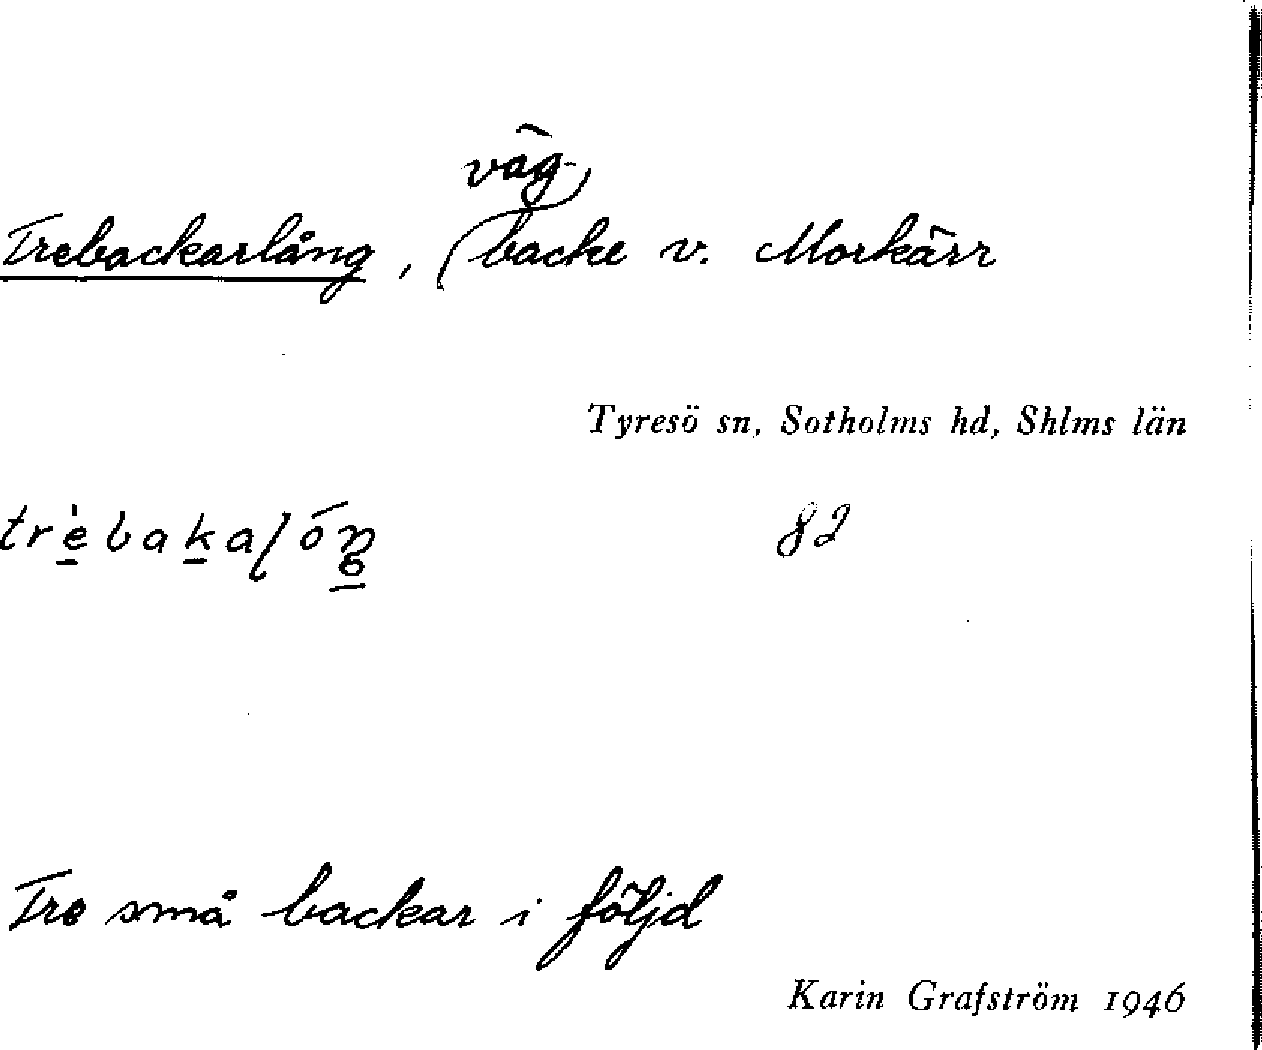 Trebackarlång, vägbacke v. Morkärr
Tyresö sn, Sotholms hd, Shlms län
82
Tre små backar i följd
Karin Grafström 1946